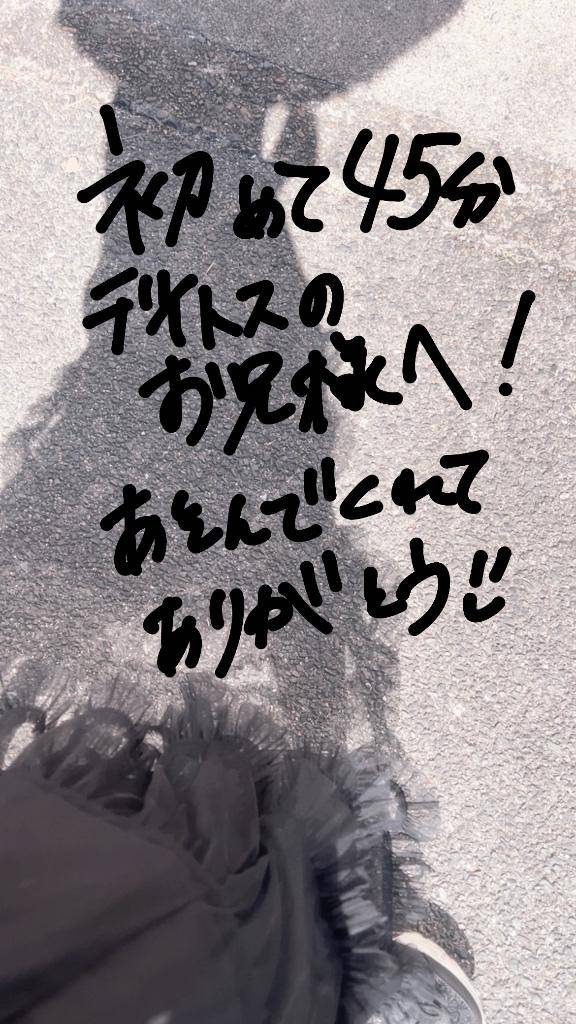 初めて45分
デリイトスの
お兄様へ！
あそんでくれて
ありがとう!!